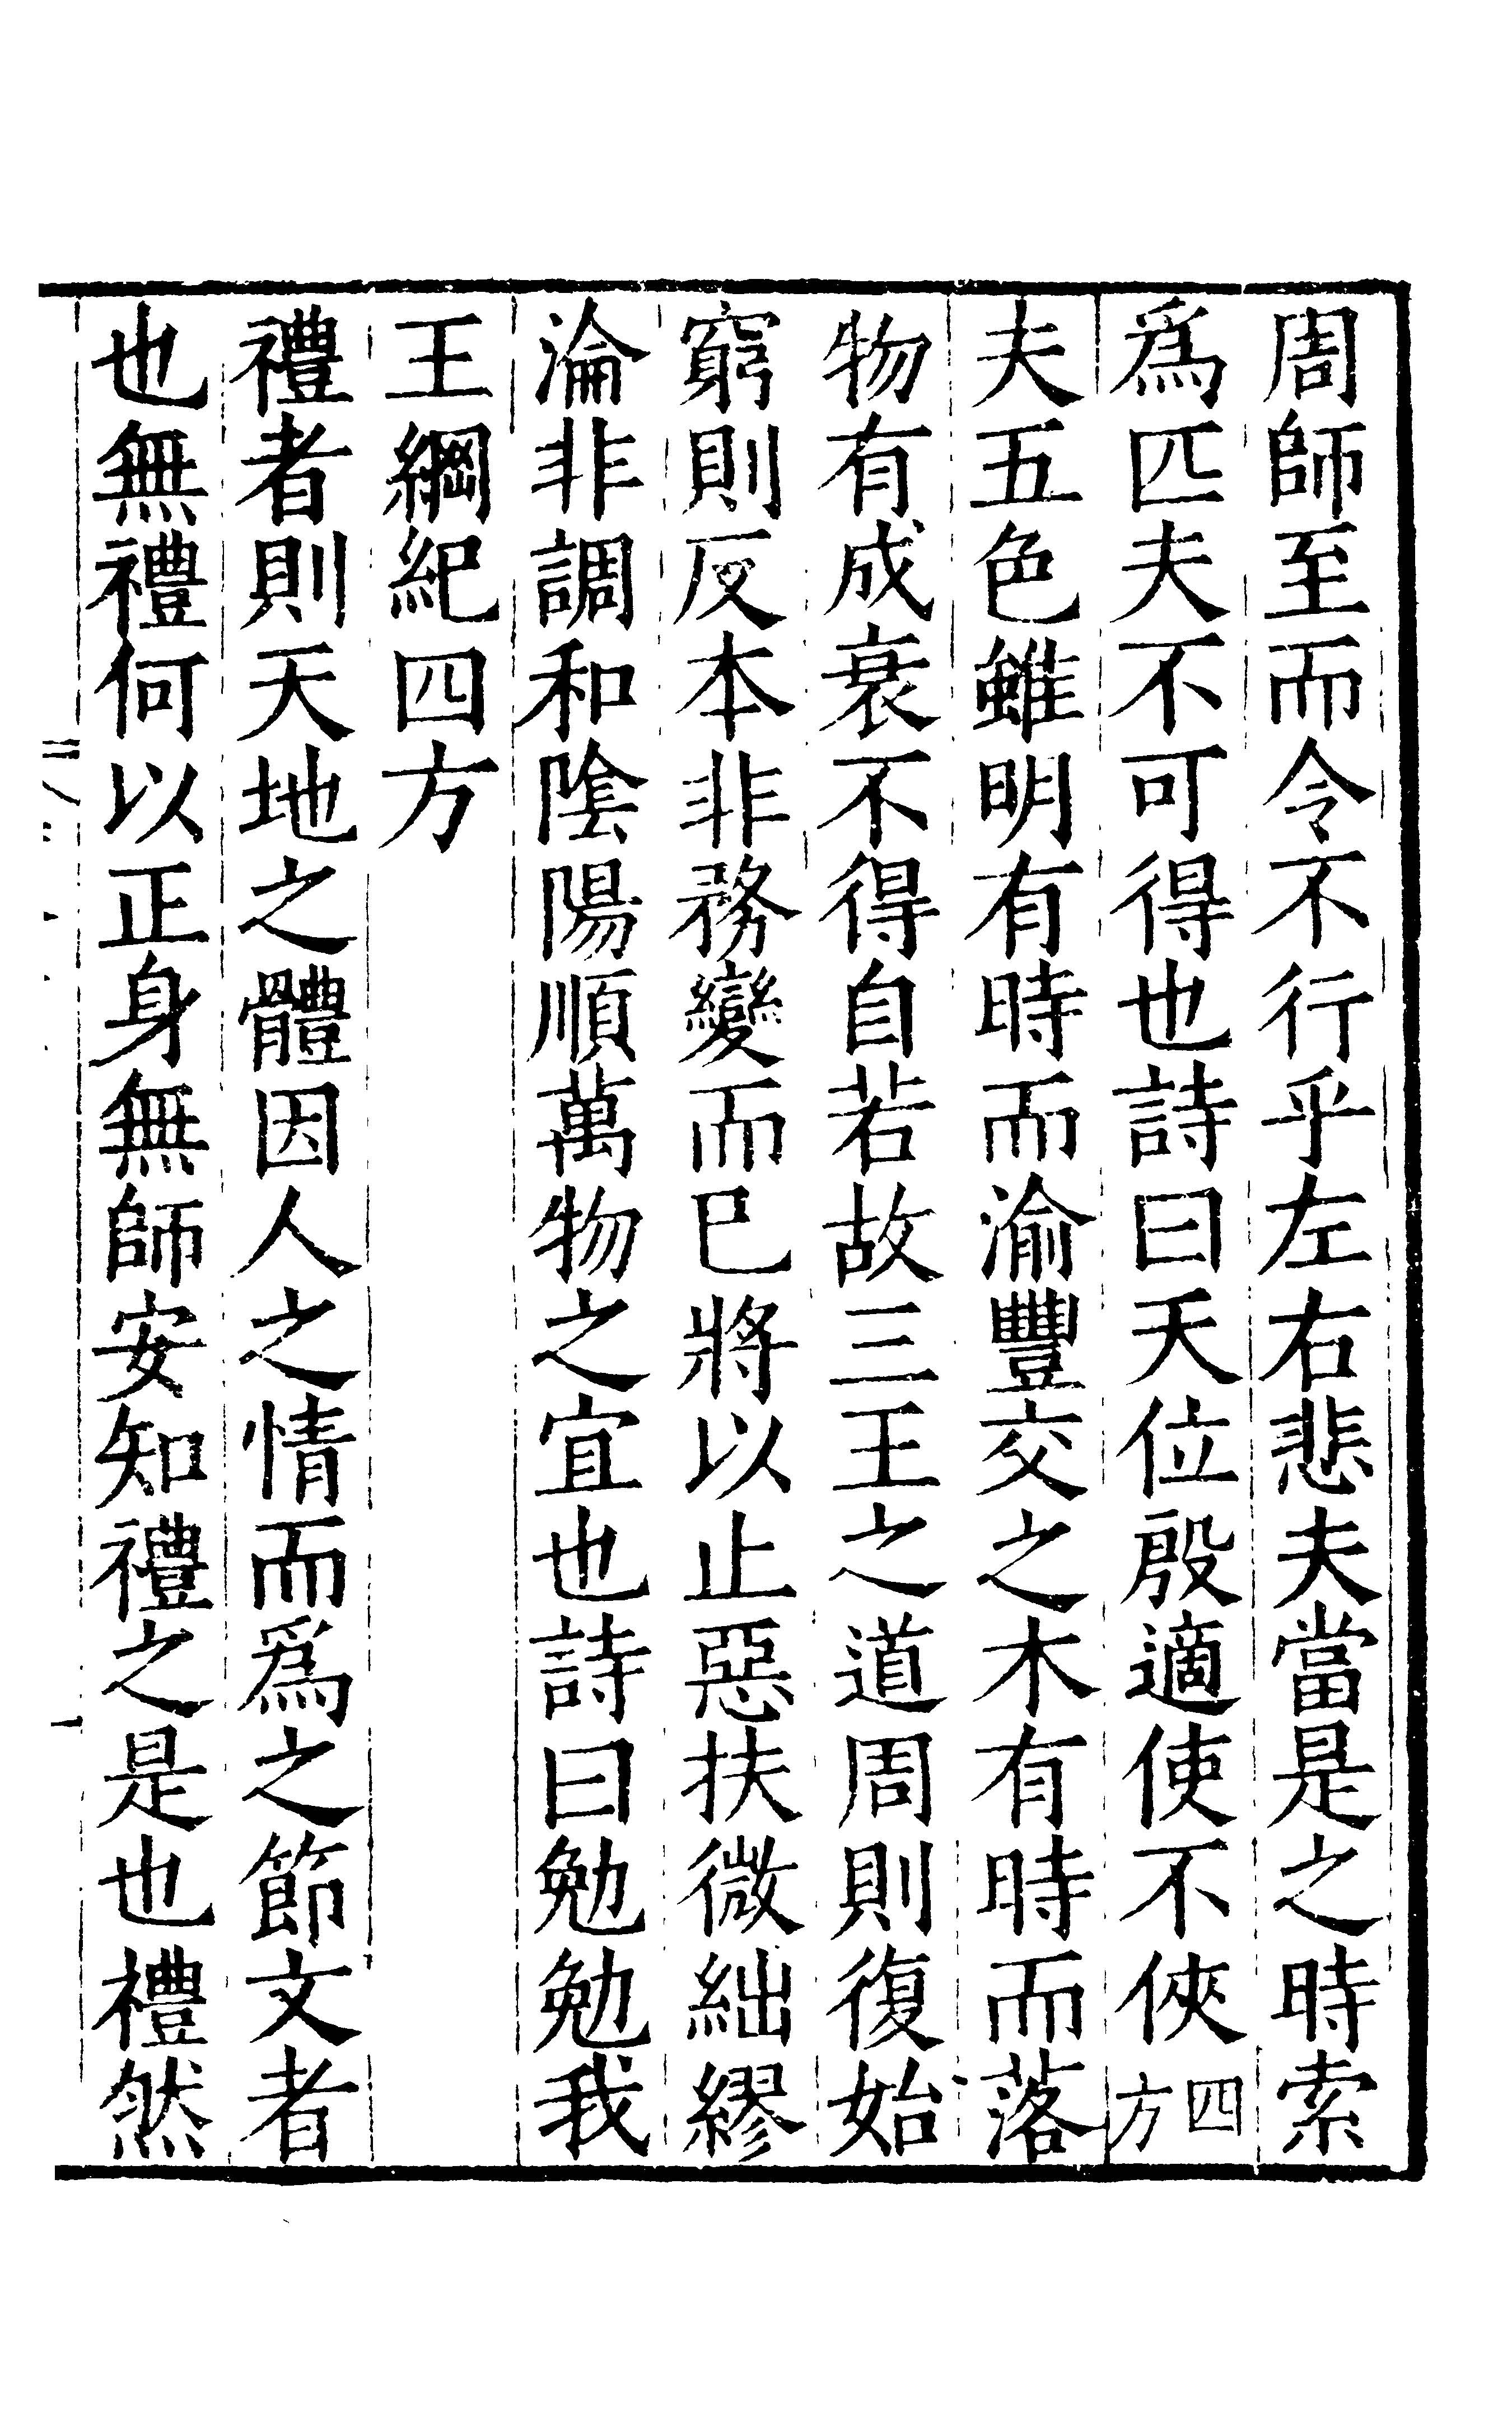 周師至而令不行乎左右悲夫當是之時索
爲匹夫不可得也詩曰天位殷適使不俠四方
夫五色雖明有時而渝豐交之木有時而落
物有成衰不得自若故三王之道周則復始
窮則反本非務變而已將以止惡扶微絀繆
淪非調和陰陽順萬物之宜也詩曰勉勉我
王綱紀四方
禮者則天地之體因人之情而爲之節文者
也無禮何以正身無師安知禮之是也禮然